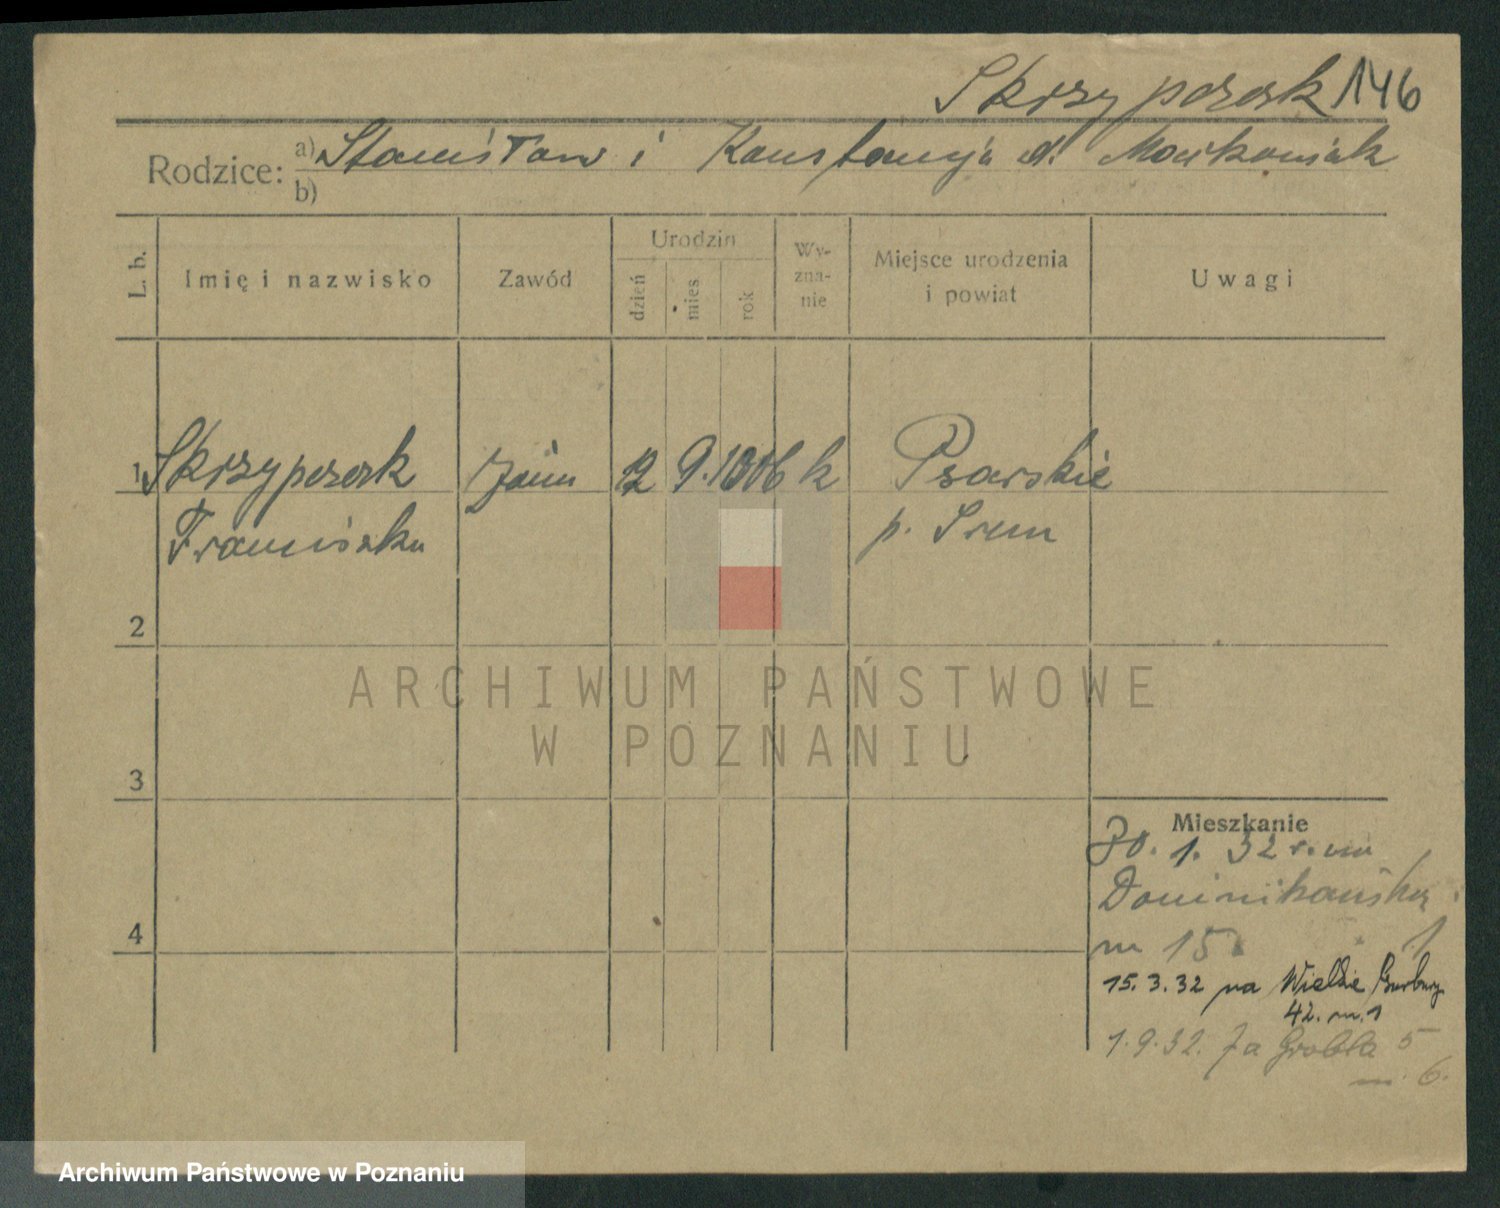 Skrzypczak 146
Rodzice: a) Stanisław i Konstancja d. Maćkowiak
b)
L. b. Imię i nazwisko Zawód Urodzin dzień mies rok Wy-zna-nie Miejsce urodzenia i powiat Uwagi
1 Skrzypczak 12 9. k Psarskie
Franciszka p. Srem
2
3
4
Mieszkanie
30. 1. 32 r. na
Dominikańską
m 15
15. 3. 32 na Wielkie Garbary
42. m. 1
1. 9. 32. Za Grobla 5
m. 6.
ARCHIWUM PAŃSTWOWE
W POZNANIU
Archiwum Państwowe w Poznaniu